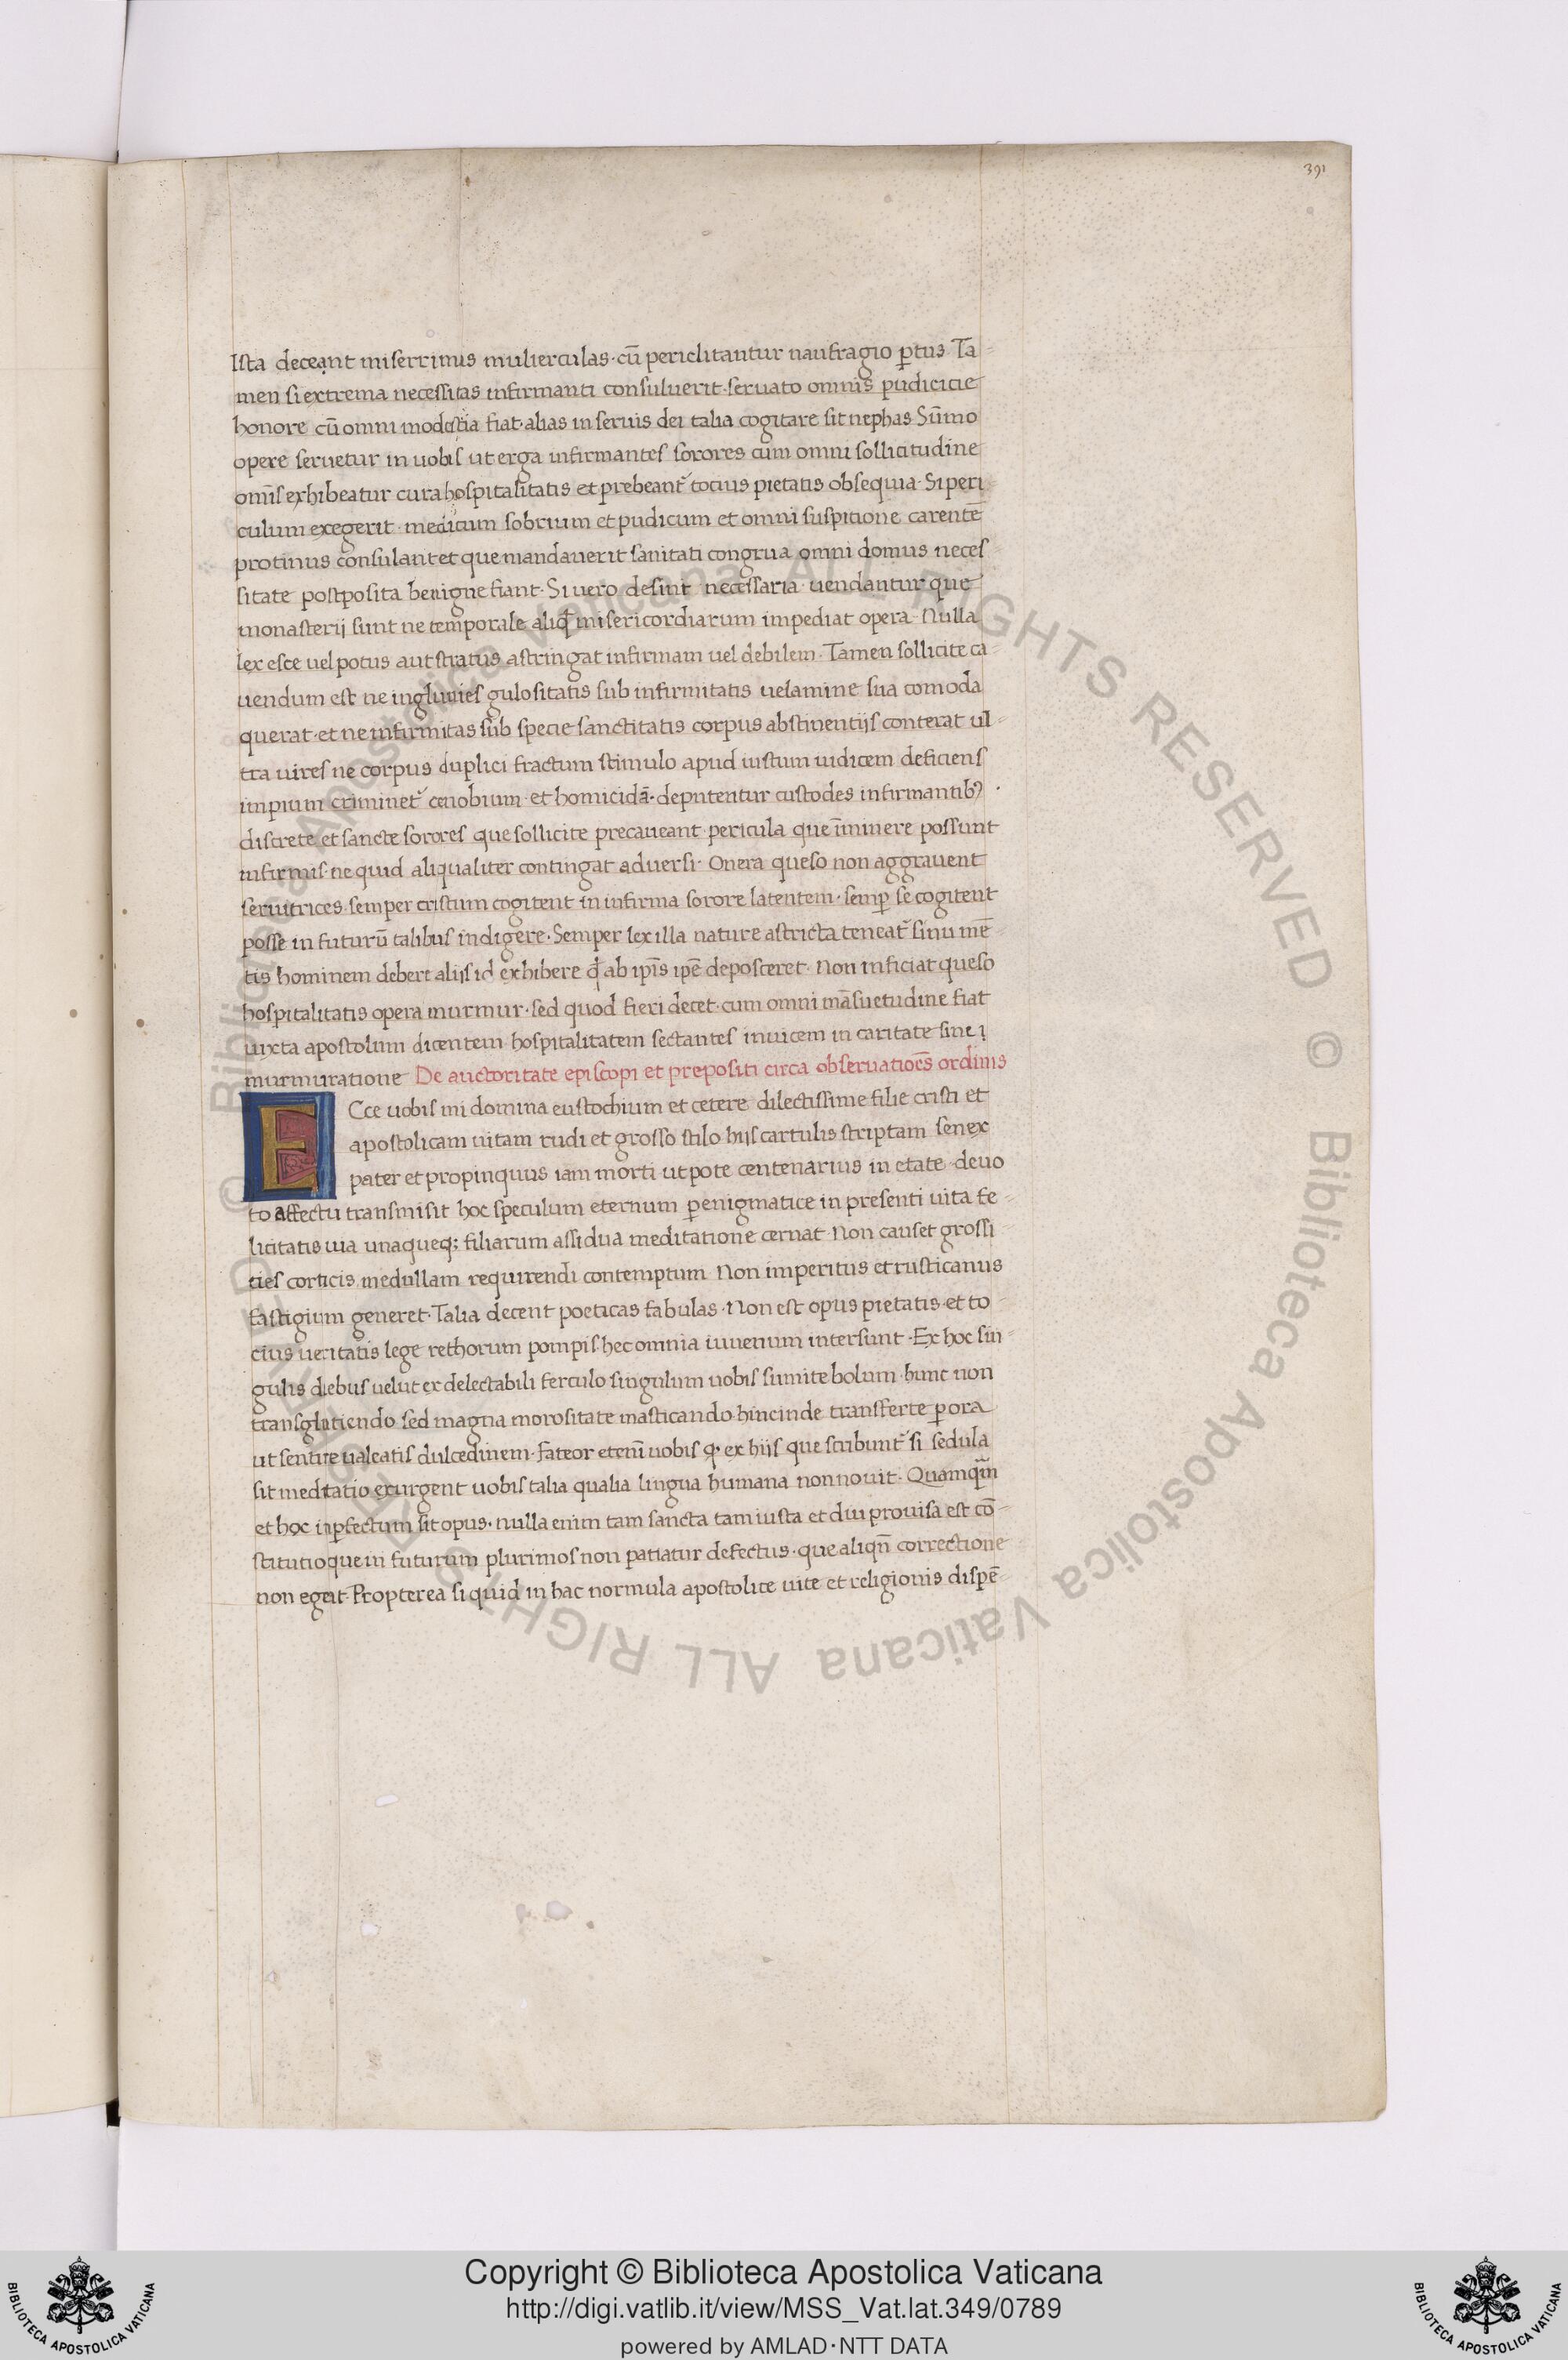 391
Ista deceant miserrimis mulierculas · cū periclitantur naufragio ꝑtus. Ta-
men si extrema necessitas infirmanti consuluerit · seruato omnis pudicicie
honore cū omni modestia fiat · alias in seruis dei talia cogitare sit nephas. Sūmo
opere seruetur in uobis ut erga infirmantes sorores cum omni sollicitudine
omīs exhibeatur cura hospitalitatis et prebeant᷑ tocius pietatis obsequia · Si peri
culum exegerit · medicum sobrium et pudicum et omni suspitione carentē
protinus consulant et que mandauerit sanitati congrua omni domus neces
sitate postposita benigne fiant · Si uero desint necessaria uendantur que
monasterij sunt ne temporale aliqđ misericordiarum impediat opera · Nulla
lex esce uel potus aut stratus astringat infirmam uel debilem · Tamen sollicite ca-
uendum est ne ingluuies gulositatis sub infirmitatis uelamine sua comoda
querat · et ne infirmitas sub specie sanctitatis corpus abstinentijs conterat ul-
tra uires ne corpus duplici fractum stimulo apud iustum iudicem deficiens
impium criminet᷑ cenobium · et homicidā · deputentur custodes infirmantibꝰ ·
discrete et sancte sorores que sollicite precaueant pericula que īminere possunt
infirmis · ne quid aliqualiter contingat aduersi · Onera queso non aggrauent
seruitrices · semper cristum cogitent in infirma sorore latentem · semꝑ se cogitent
posse in futurū talibus indigere · Semper lex illa nature astricta teneat᷑ sinu mē-
tis hominem debere alijs id exhibere qđ ab ip̄is ip̄e deposceret · Non inficiat queso
hospitalitatis opera murmur · sed quod fieri decet · cum omni māsuetudine fiat
iuxta apostolum dicentem hospitalitatem sectantes inuicem in caritate sine
murmuratione De auctoritate episcopi et prepositi circa obseruatioēs ordinis
E Cce uobis mi domina eustochium et cetere dilectissime filie cristi et
apostolicam uitam rudi et grosso stilo hijs cartulis scriptam senex
pater et propinquus iam morti utpote centenarius in etate · deuo
to affectu transmisit hoc speculum eternum ꝑ enigmatice in presenti uita fe-
licitatis uia unaqueqꝫ filiarum assidua meditatione cernat · Non causet grossi-
ties corticis medullam requirendi contemptum Non imperitus et rusticanus
fastigium generet · Talia decent poeticas fabulas · Non est opus pietatis · et to-
cius ueritatis lege rethorum pompis hec omnia iuuenum intersunt · Ex hoc sin-
gulis diebus uelut ex delectabili ferculo singulum uobis sumite bolum · hunc non
transglutiendo sed magna morositate masticando · hincinde transferte ꝑ ora
ut sentire ualeatis dulcedinem · fateor etenī uobis q· ex hijs que scribunt᷑ si sedula
sit meditatio exurgent uobis talia qualia lingua humana non nouit · Quamqm̄
et hoc inꝑfectum sit opus · nulla enim tam sancta tam iusta et diu prouisa est cō-
stitutio que in futurum plurimos non patiatur defectus · que aliqn̄ correctione
non egeat · Propterea si quid in hac normula apostolice uite et religionis dispē-
© Biblioteca Apostolica Vaticana ALL RIGHTS RESERVED © Biblioteca Apostolica Vaticana ALL RIGHTS RESERVED
Copyright © Biblioteca Apostolica Vaticana
http://digi.vatlib.it/view/MSS_Vat.lat.349/0789
powered by AMLAD·NTT DATA
BIBLIOTECA APOSTOLICA VATICANA
BIBLIOTECA APOSTOLICA VATICANA